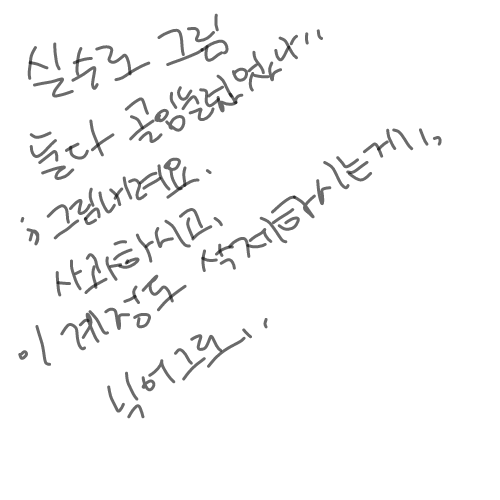 실수로 그림
둘다 골임눌렀었나..
;; 그림내려요.
사과하시고,
이 계정도 삭제하시는게,
닉어그로..